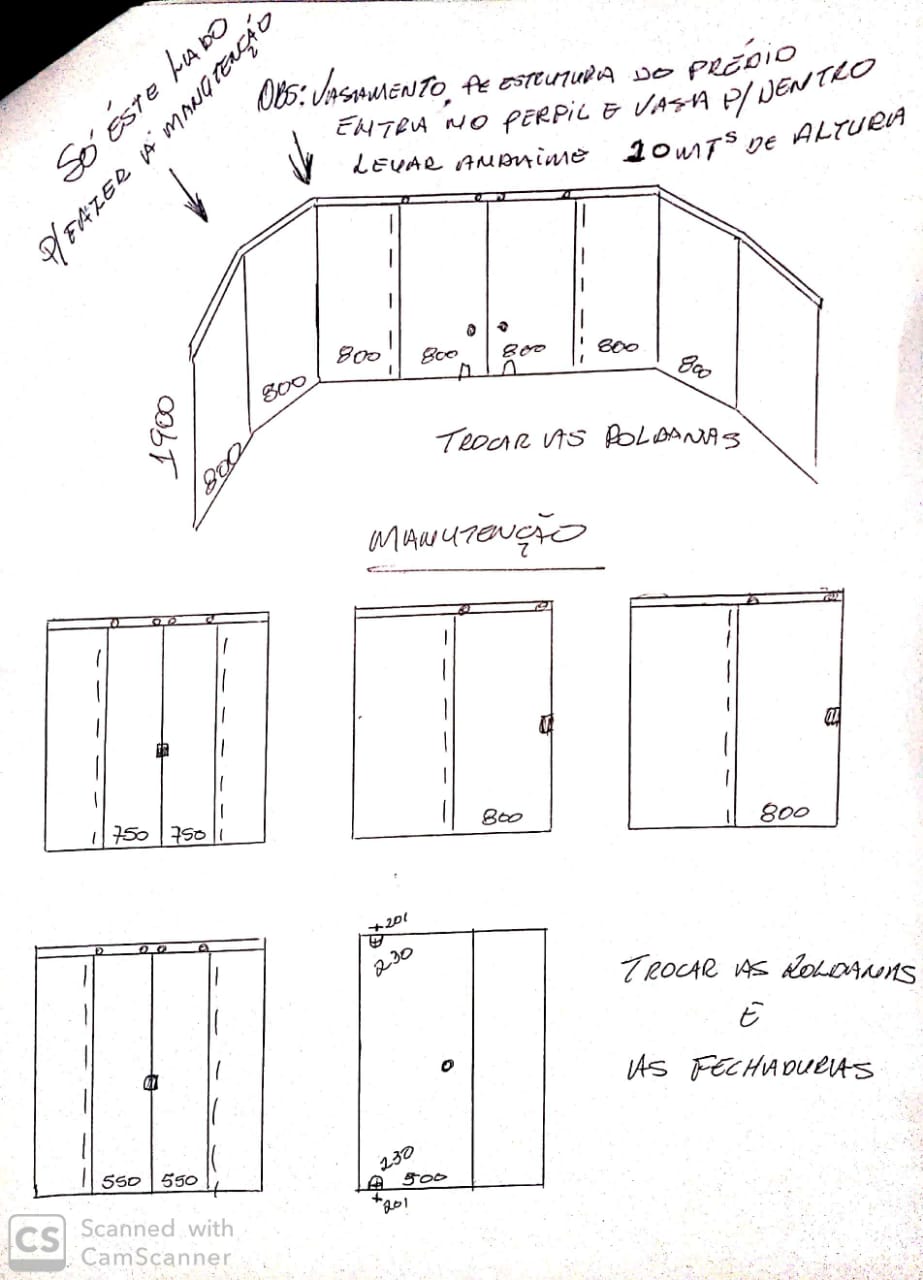 SÓ ÉSTE LADO
P/ FAZER A MANUTENÇÃO
OBS: VASAMENTO DE ESTRUTURA DO PRÉDIO
ENTRA NO PERFIL E VASA P/ DENTRO
LEVAR ANDAIME 10 MTS DE ALTURA
800 800 800 800
800 800
1900
800
TROCAR AS ROLDANAS
MANUTENÇÃO
750 750
800
800
201
230
TROCAR AS ROLDANAS
E
AS FECHADURAS
230
550 550
500
201
CS Scanned with
CamScanner